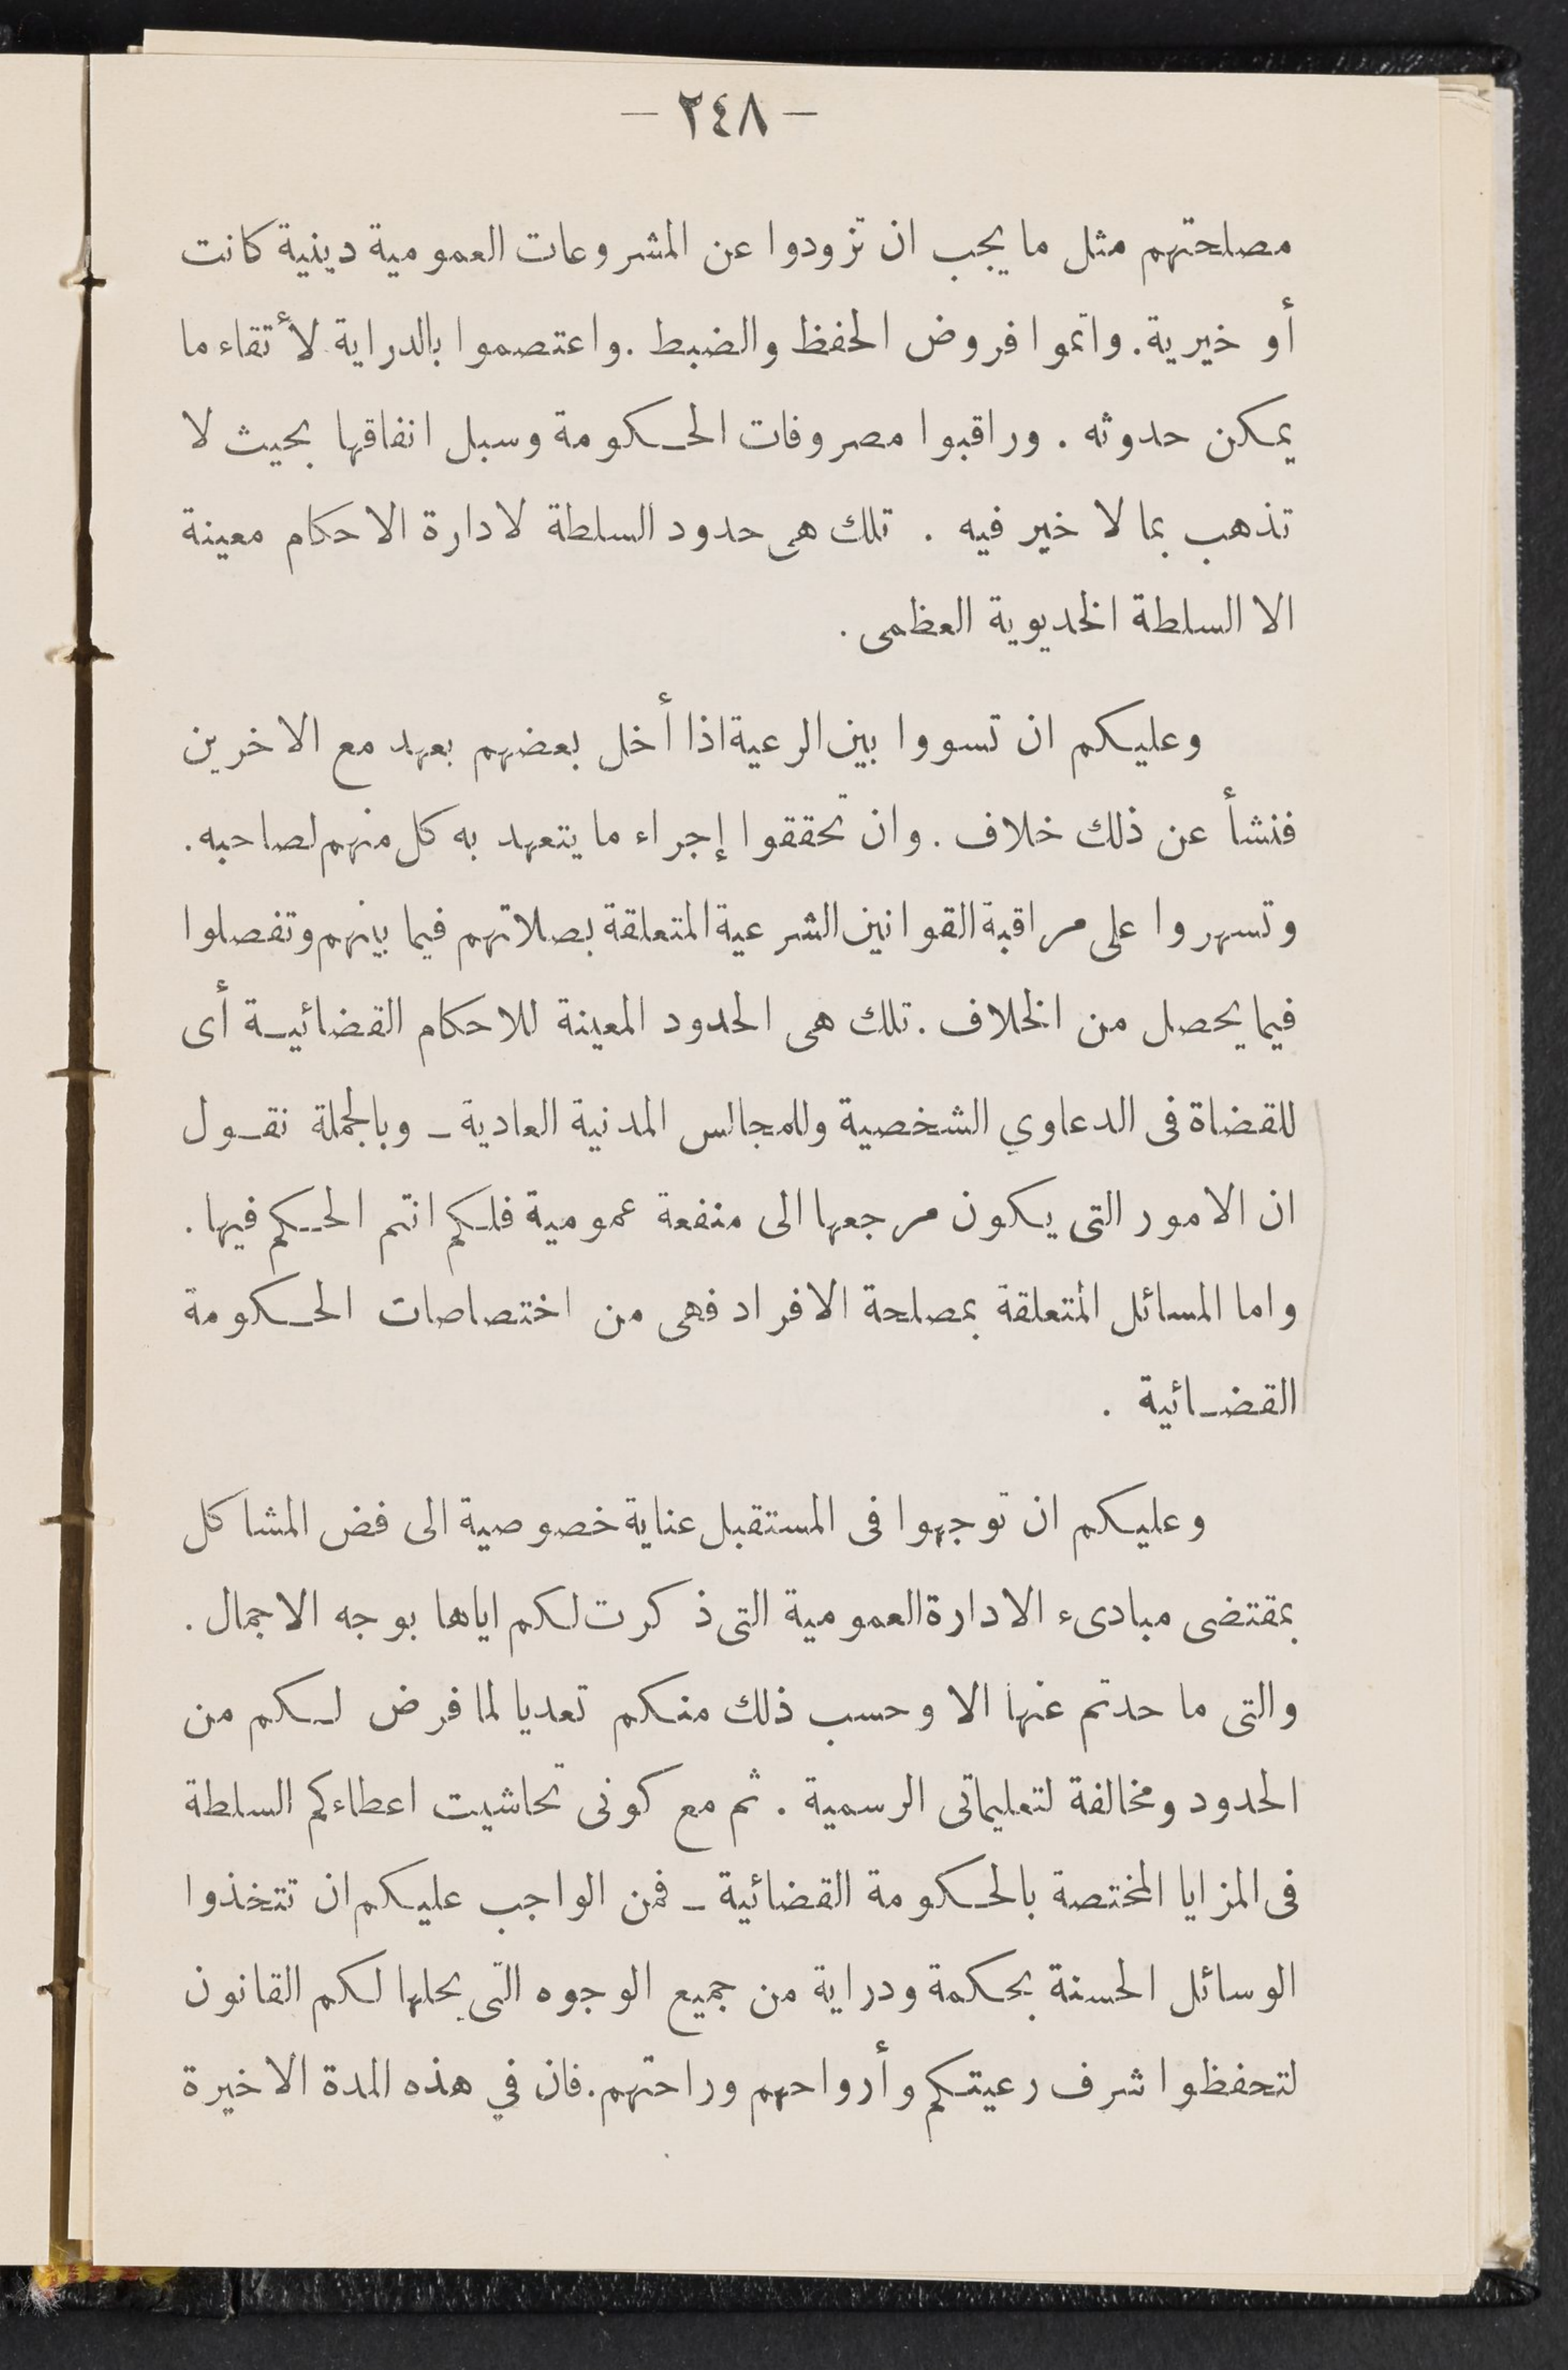 — ٢٤٨ —
مصلحتهم مثل ما يجب ان تزودوا عن المشروعات العمومية دينية كانت
أو خيرية. واتموا فروض الحفظ والضبط .واعتصموا بالدراية لأتقاء ما
يمكن حدوثه . وراقبوا مصروفات الحـكومة وسبل انفاقها بحيث لا
تذهب بما لا خير فيه . تلك هى حدود السلطة لادارة الاحكام معينة
الا السلطة الخديوية العظمى .
وعليكم ان تسووا بين الرعية اذا أخل بعضهم بعهد مع الاخرين
فنشأ عن ذلك خلاف . وان تحققوا إجراء ما يتعهد به كل منهم لصاحبه .
وتسهروا على مراقبة القوانين الشرعية المتعلقة بصلاتهم فيما بينهم وتفصلوا
فيما يحصل من الخلاف . تلك هى الحدود المعينة للاحكام القضائيـة أى
للقضاة فى الدعاوي الشخصية وللمجالس المدنية العادية ـ وبالجملة نقـول
ان الامور التى يكون مرجعها الى منفعة عمومية فلكم انتم الحـكم فيها .
واما المسائل المتعلقة بمصلحة الافراد فهى من اختصاصات الحـكومة
القضـائية .
وعليكم ان توجهوا فى المستقبل عناية خصوصية الى فض المشاكل
بمقتضى مبادىء الادارة العمومية التى ذكرت لكم اياها بوجه الاجمال .
والتى ما حدتم عنها الا وحسب ذلك منكم تعديا لما فرض لـكم من
الحدود ومخالفة لتعليماتى الرسمية . ثم مع كونى تحاشيت اعطاءكم السلطة
فى المزايا المختصة بالحـكومة القضائية ـ فمن الواجب عليكم ان تتخذوا
الوسائل الحسنة بحكمة ودراية من جميع الوجوه التى يحلها لكم القانون
لتحفظوا شرف رعيتكم وأرواحهم وراحتهم. فان في هذه المدة الاخيرة